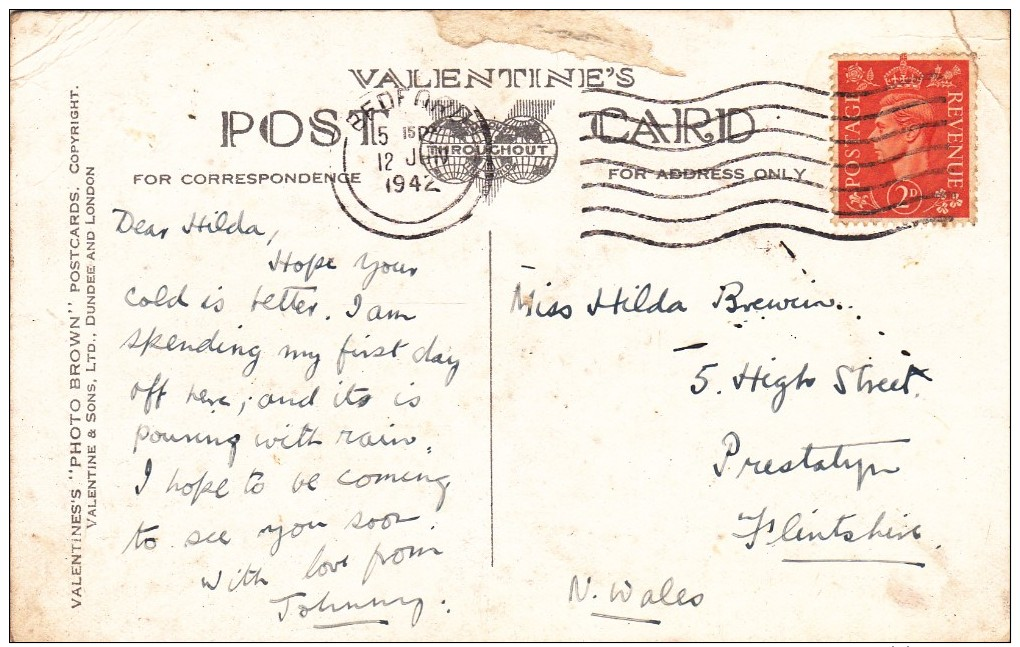 VALENTINE'S
POST CARD
FOR CORRESPONDENCE
FOR ADDRESS ONLY
THROUGHOUT
BEDFORD
5 15 PM
12 JUN
1942
POSTAGE
REVENUE
2D
VALENTINES'S "PHOTO BROWN" POSTCARDS. COPYRIGHT.
VALENTINE & SONS, LTD., DUNDEE AND LONDON
Dear Hilda,
Hope your
cold is better. I am
spending my first day
off here, and its is
pouring with rain.
I hope to be coming
to see you soon.
with love from
Johnny.
Miss Hilda Brewin.
5. High Street.
Prestatyn
Flintshire.
N. Wales